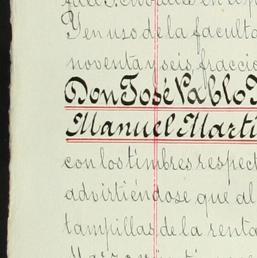 Y en uso de la faculta
noventa y seis, fraccio
Don José Pablo
Manuel Marti
con los timbres respect
advirtiéndose que al
tampillas de la renta